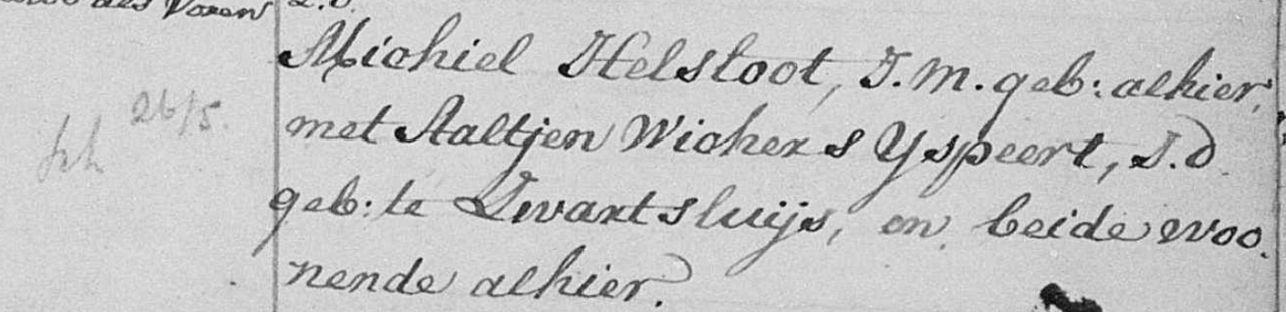 als Voren
Michiel Helsloot, J.M. geb: alhier,
met Aaltjen Wichers Yspeert, J.d.
26/5.
geb: te Zwartsluijs, en beide woo„
nende alhier.